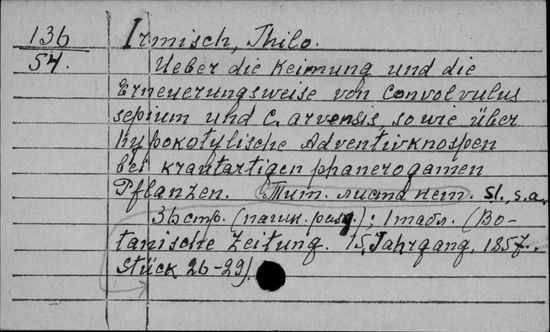 136 Irmisch, Thilo.
54. Ueber die Keimung und die
Erneuerungsweise von Convolvulus
sepium und C. arvensis, sowie über
hypokotylische Adventivknospen
bei krautartigen phanerogamen
Pflanzen. (Тит. листа нет. Sl., s.a.
36 стр. (пагин. разд.); 1 табл. (Bo-
tanische Zeitung. 15, Jahrgang, 1857.
Stück 26-29).